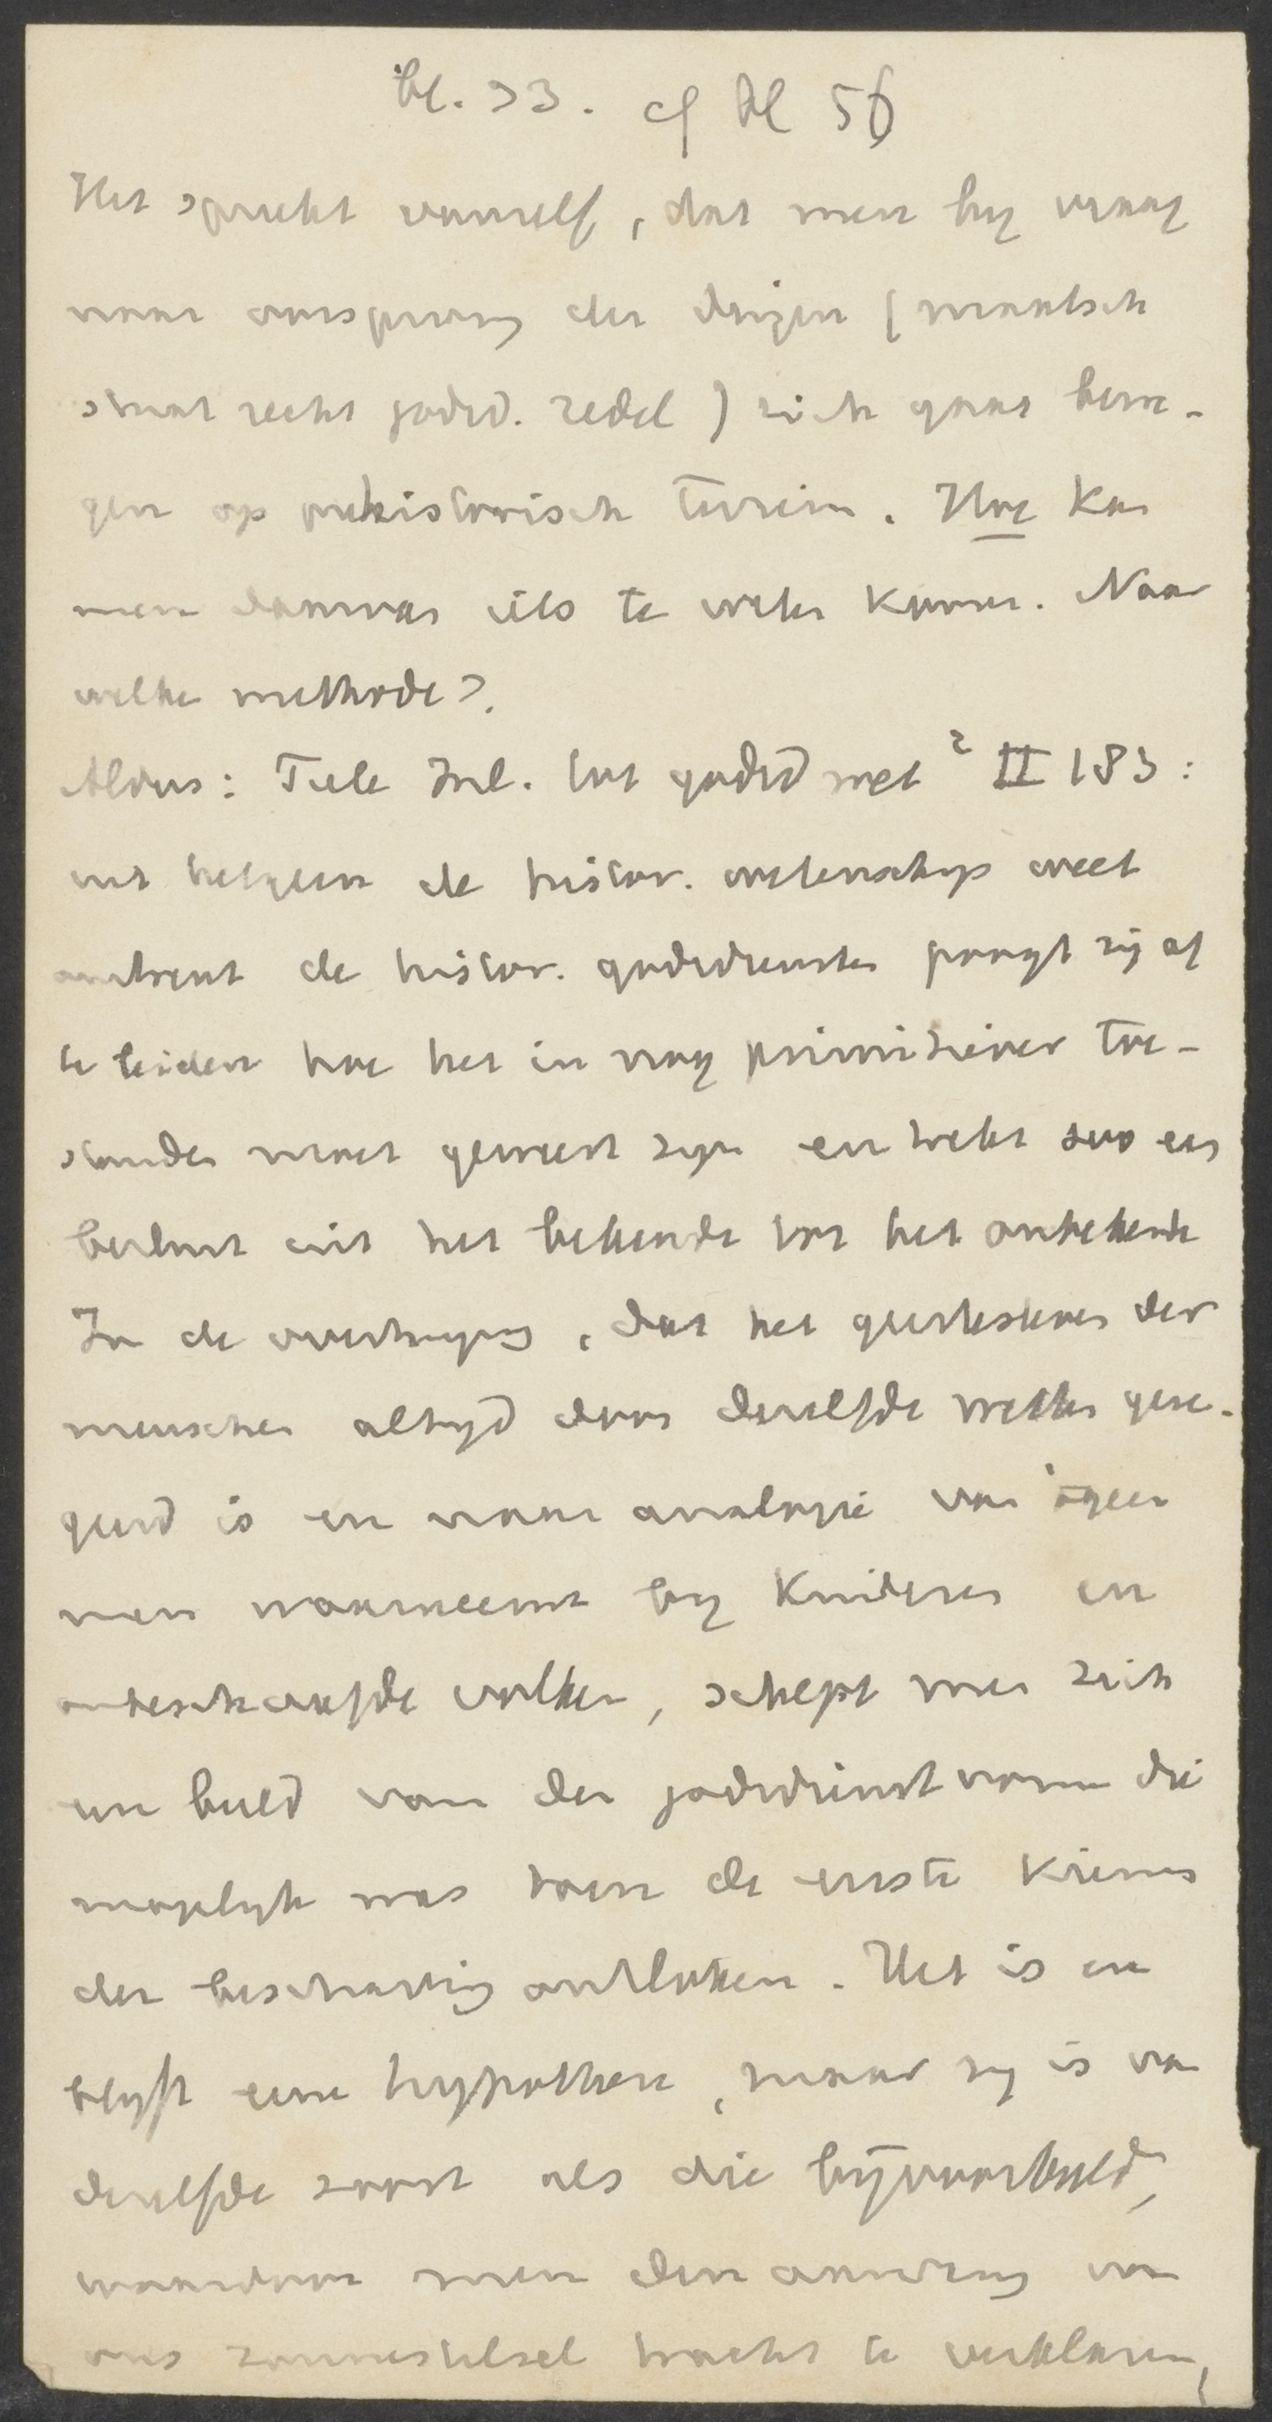 bl. 33. cf bl 56
Het spreekt vanzelf, dat men bij vraag
naar oorsprong der dingen (maatsch
staat recht godsd. zedel) zich gaat bewe-
gen op prehistorisch terrein. Hoe kan
men daarvan iets te weten komen. Naar
welke methode?
Aldus: Tiele Inl. tot godsd wet ² II 183:
uit hetgeen de histor. wetenschap weet
omtrent de histor. godsdiensten poogt zij af
te leiden hoe het in nog primitiever toe-
standen moet geweest zijn en trekt dus een
besluit uit het bekende tot het onbekende
In de overtuiging, dat het geestesleven der
menschen altijd door dezelfde wetten gere-
geerd is en naar analogie van 'tgeen
men waarneemt bij kinderen en
onbeschaafde volken, schept men zich
een beeld van den godsdienstvorm die
mogelijk was toen de eerste kiemen
der beschaving ontloken. Het is en
blijft eene hypothese, maar zij is van
dezelfde soort als die bijvoorbeeld,
waardoor men den aanvang van
ons zonnestelsel tracht te verklaren,